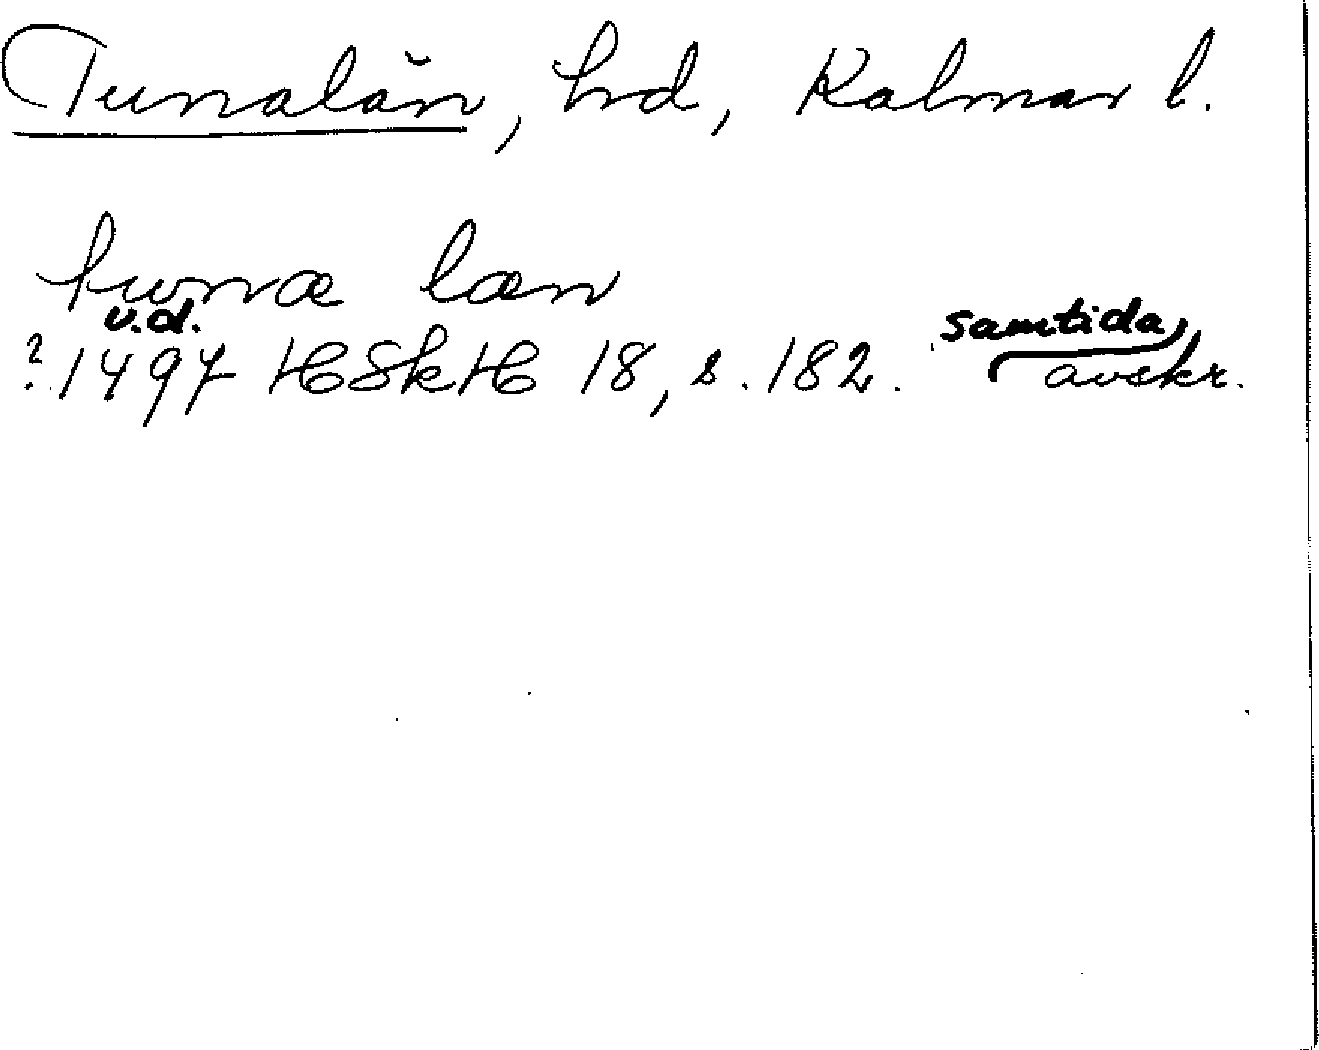 Tunalän, hd, Kalmar l.
tunæ læn
u.d.
samtida
? 1497 HSkH 18, s. 182. avskr.